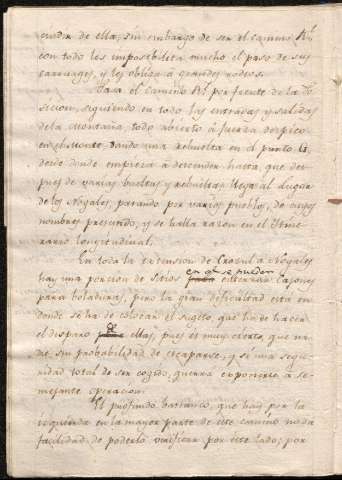 cuidir de ella, sin embargo de ser el camino Rl.
con todo les imposibilita mucho el paso de sus
carruages, y les obliga á grandes rodeos.
Pasa el Camino Rl. por frente de la Po
sicion, siguiendo en todo, las entradas y salidas
de la montaña, todo abierto á fuerza de pico
en el monte dando una rebuelta en el punto G,
desde donde empieza á descender hasta, que des
pues de varias bueltas y rebueltas llega al Lugar
de los Nogales, pasando por varios pueblos, de cuyos
nombres prescindo, y se halla razon en el Itine
rario longitudinal.
En toda la extension de Cruzul a Nogales
hay una porcion de Sitios en qe. se pueden enterrar Cajones
para boladuras, pero la gran dificultad está en
donde se há de colocar el sugeto, que há de hacer
el disparo de ellas, pues es muy cierto, que na
die sin probabilidad de escaparse, y si una segu
ridad total de ser cogido, querrá exponerse á se
mejante operacion.
El profundo barranco, que hay por la
izquierda en la mayor parte de este camino no dá
facilidad de poderlo verificar por este lado; por